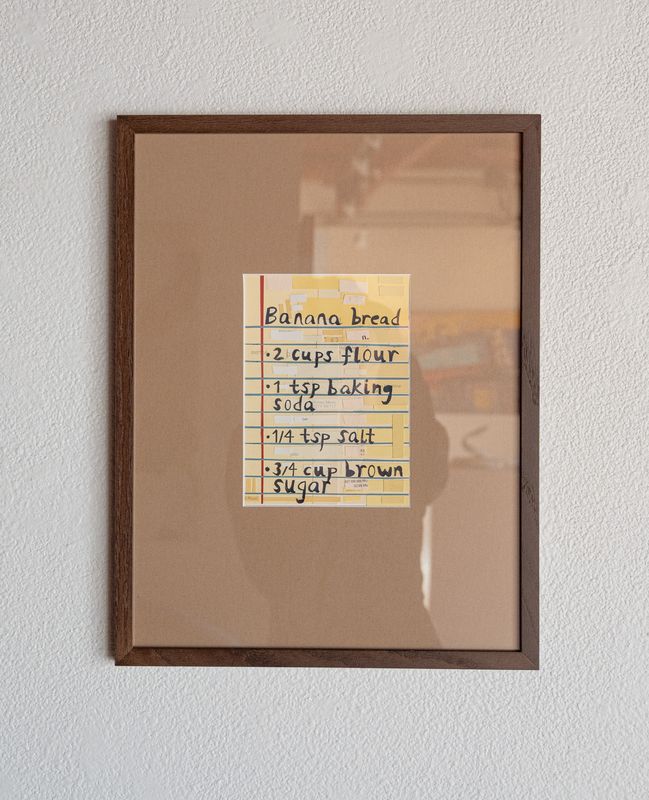 Banana bread
•2 cups flour
•1 tsp baking
soda
•1/4 tsp salt
•3/4 cup brown
sugar